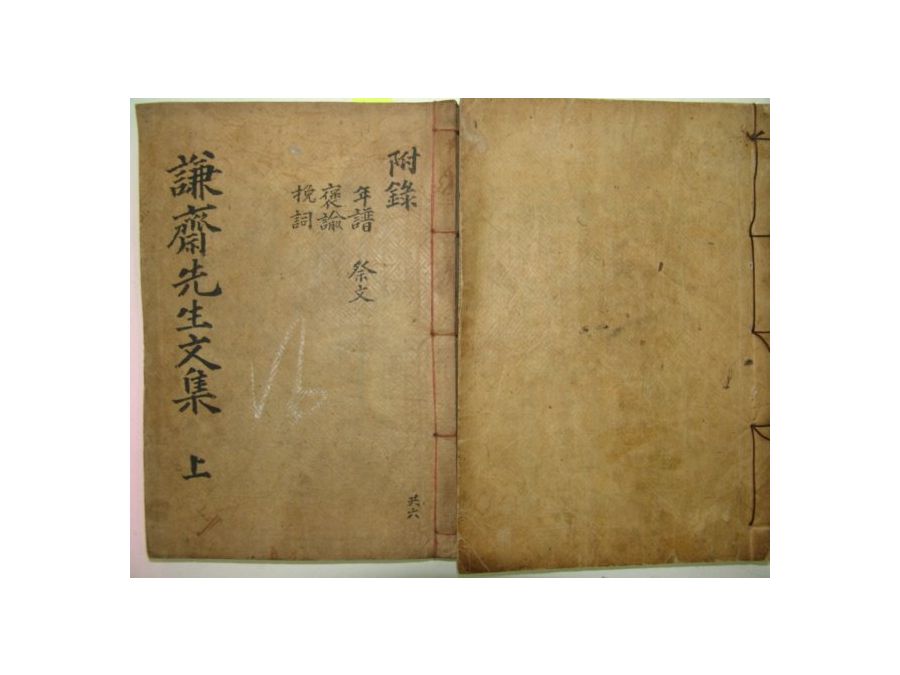 附錄
年譜 祭文
褒諭
挽詞
謙齋先生文集 上
共六